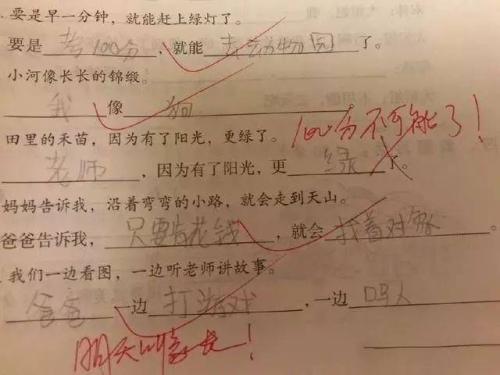 . 要是早一分钟，就能赶上绿灯了。
要是 考100分 ，就能 去动物园 了。
小河像长长的锦缎。
我 像 狗
100分不可能了！
田里的禾苗，因为有了阳光，更绿了。
老师 ，因为有了阳光，更 绿 了。
妈妈告诉我，沿着弯弯的小路，就会走到天山。
爸爸告诉我， 只要肯花钱 ，就会 找着对象
. 我们一边看图，一边听老师讲故事。
爸爸 一边 打游戏 ，一边 吗人
明天叫家长！